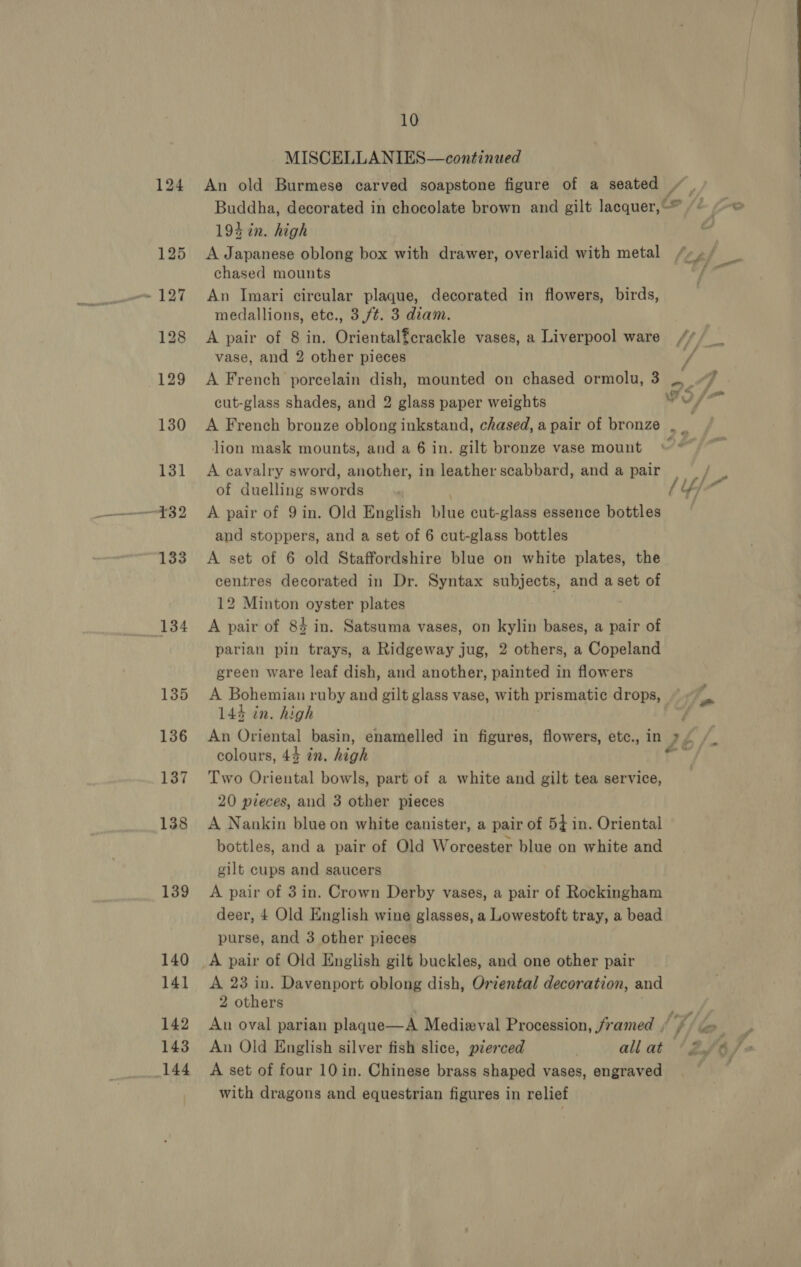 10
MISCELLANIES—continued
124 An old Burmese carved soapstone figure of a seated
Buddha, decorated in chocolate brown and gilt lacquer,
19½ in. high
125 A Japanese oblong box with drawer, overlaid with metal
chased mounts
127 An Imari circular plaque, decorated in flowers, birds,
medallions, etc., 3 ft. 3 diam.
128 A pair of 8 in. Oriental crackle vases, a Liverpool ware
vase, and 2 other pieces
129 A French porcelain dish, mounted on chased ormolu, 3
cut-glass shades, and 2 glass paper weights
130 A French bronze oblong inkstand, chased, a pair of bronze
lion mask mounts, and a 6 in. gilt bronze vase mount
131 A cavalry sword, another, in leather scabbard, and a pair
of duelling swords
132 A pair of 9 in. Old English blue cut-glass essence bottles
and stoppers, and a set of 6 cut-glass bottles
133 A set of 6 old Staffordshire blue on white plates, the
centres decorated in Dr. Syntax subjects, and a set of
12 Minton oyster plates
134 A pair of 8½ in. Satsuma vases, on kylin bases, a pair of
parian pin trays, a Ridgeway jug, 2 others, a Copeland
green ware leaf dish, and another, painted in flowers
135 A Bohemian ruby and gilt glass vase, with prismatic drops,
14½ in. high
136 An Oriental basin, enamelled in figures, flowers, etc., in
colours, 4½ in. high
137 Two Oriental bowls, part of a white and gilt tea service,
20 pieces, and 3 other pieces
138 A Nankin blue on white canister, a pair of 5¼ in. Oriental
bottles, and a pair of Old Worcester blue on white and
gilt cups and saucers
139 A pair of 3 in. Crown Derby vases, a pair of Rockingham
deer, 4 Old English wine glasses, a Lowestoft tray, a bead
purse, and 3 other pieces
140 A pair of Old English gilt buckles, and one other pair
141 A 23 in. Davenport oblong dish, Oriental decoration, and
2 others
142 An oval parian plaque—A Mediæval Procession, framed
143 An Old English silver fish slice, pierced all at
144 A set of four 10 in. Chinese brass shaped vases, engraved
with dragons and equestrian figures in relief